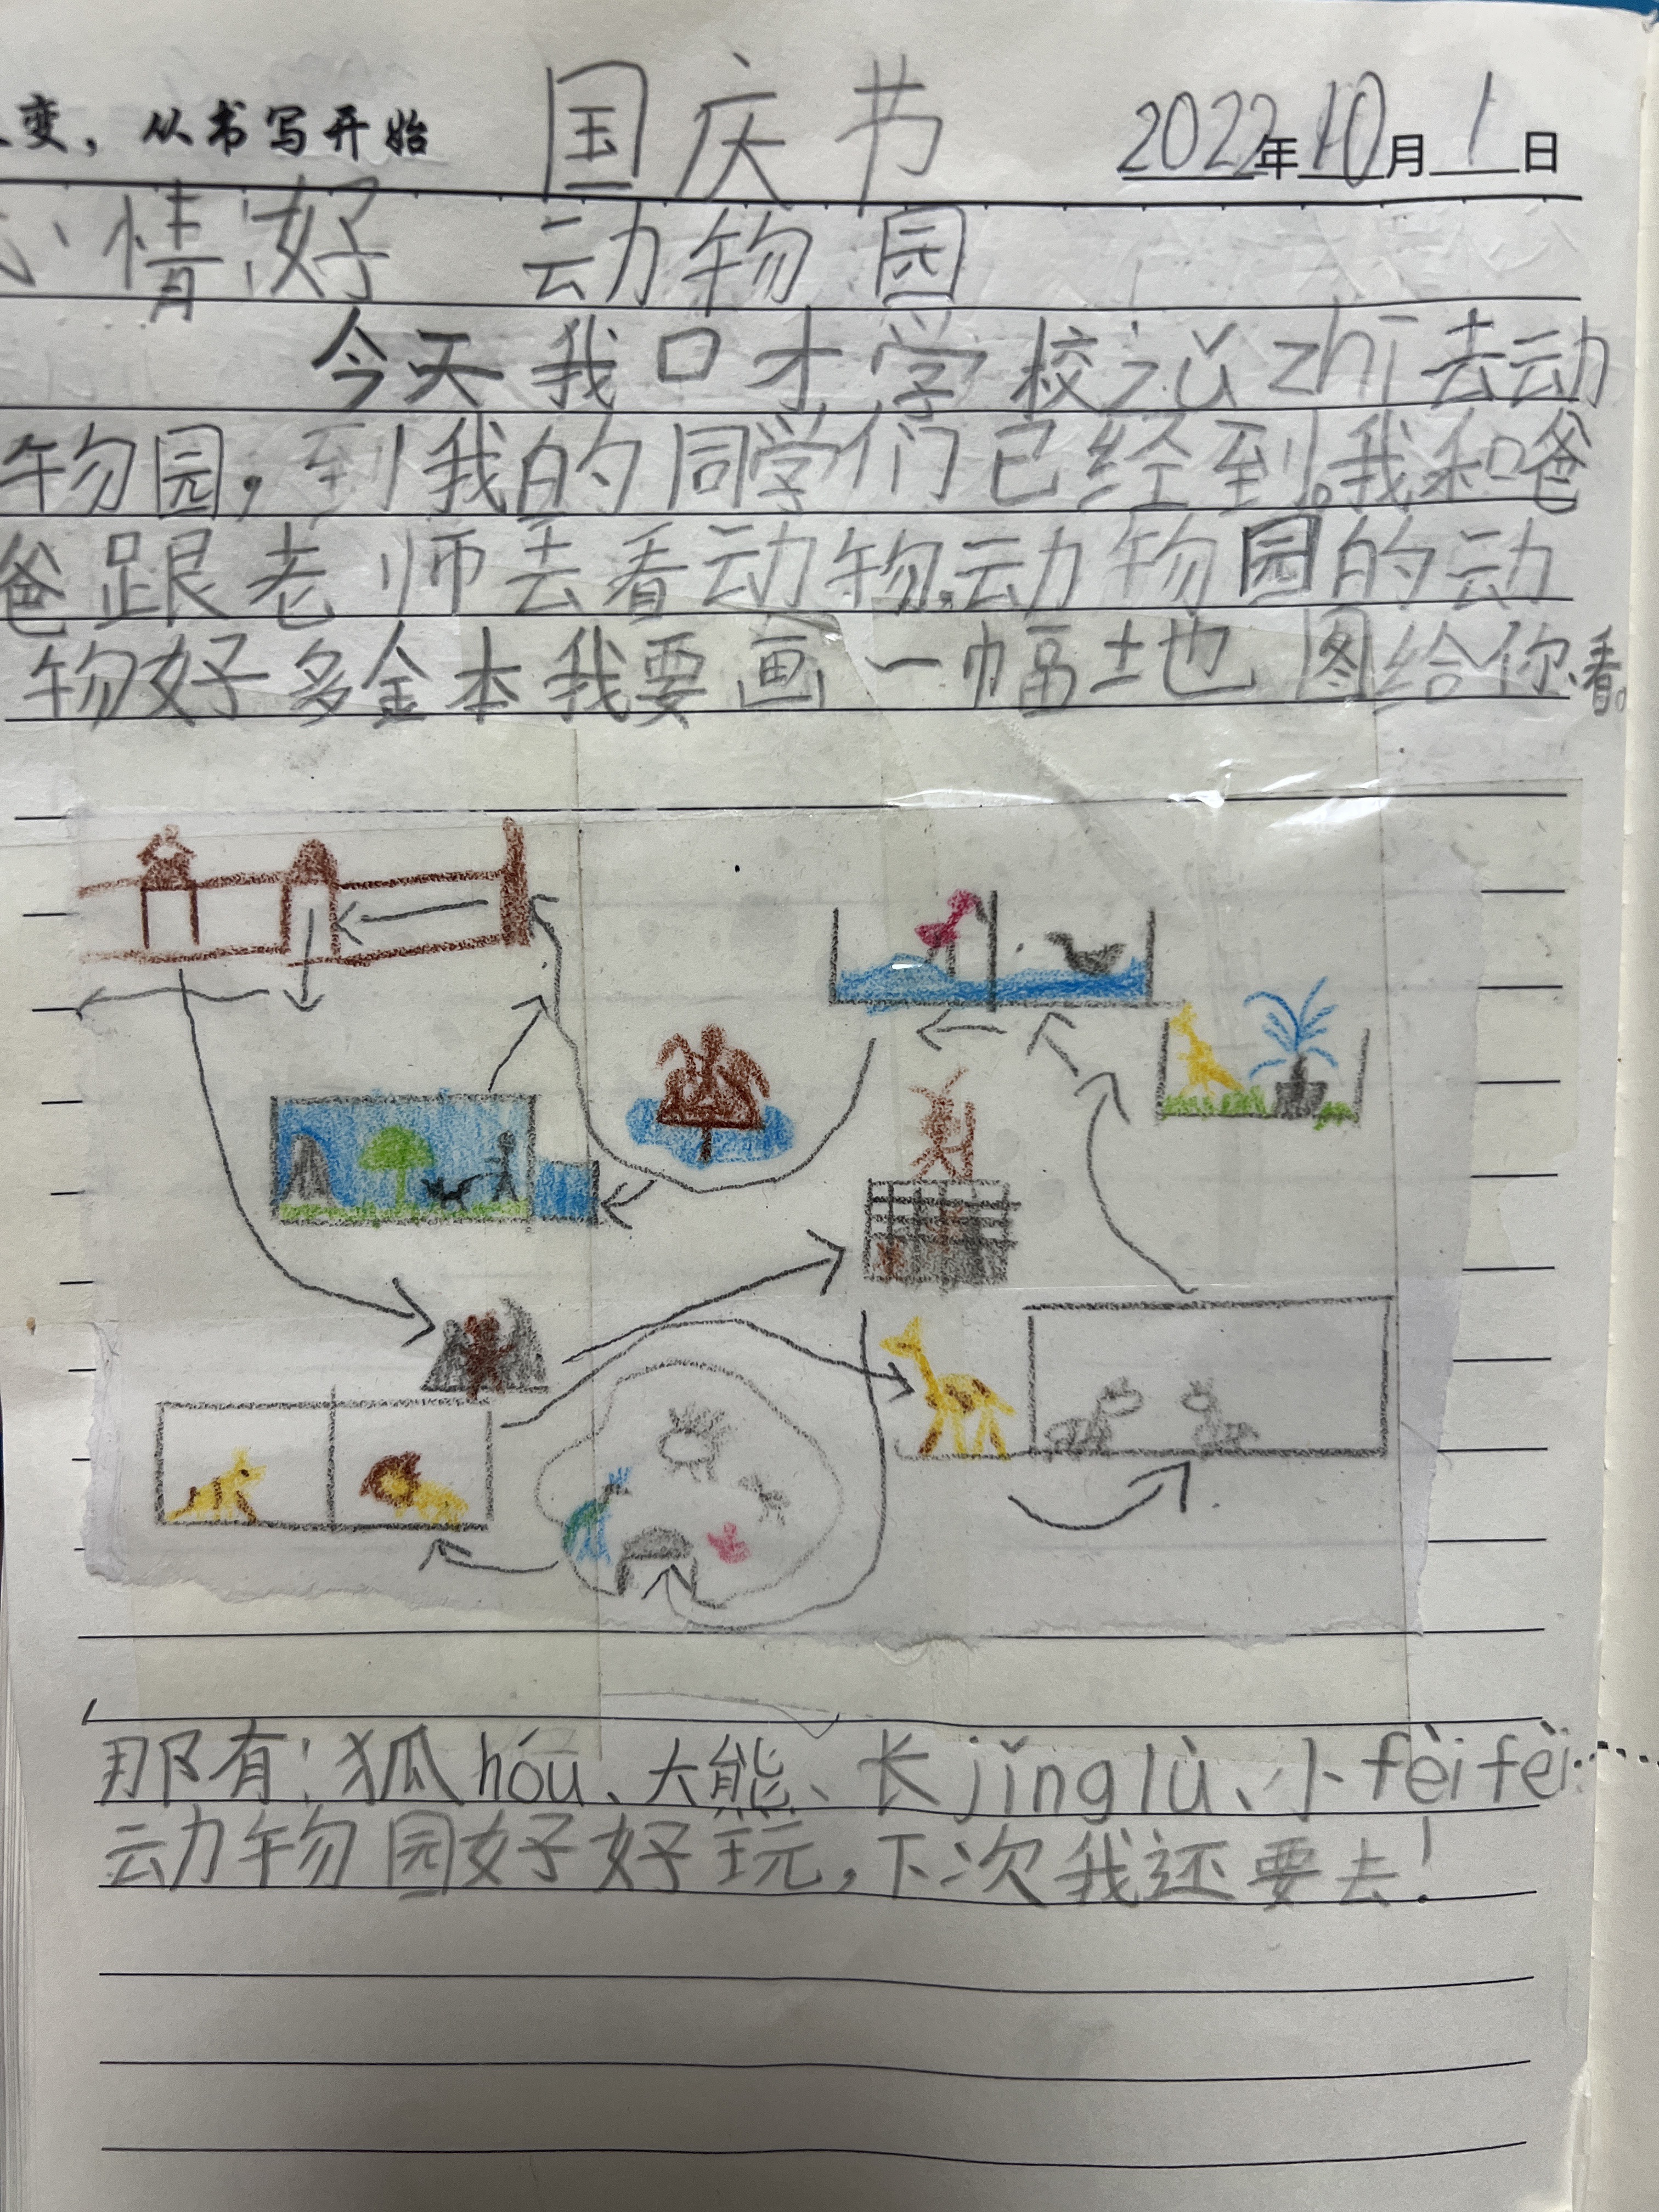 变，从书写开始 国庆节 2022年10月1日
心情:好 动物园
今天我口才学校zǔ zhī去动
物园，到我的同学们已经到。我和爸
爸跟老师去看动物,动物园的动
物好多金本我要画一幅地图给你看。
那有:狐hóu、大熊、长jǐng lù、小fèi fèi…
动物园好好玩，下次我还要去！